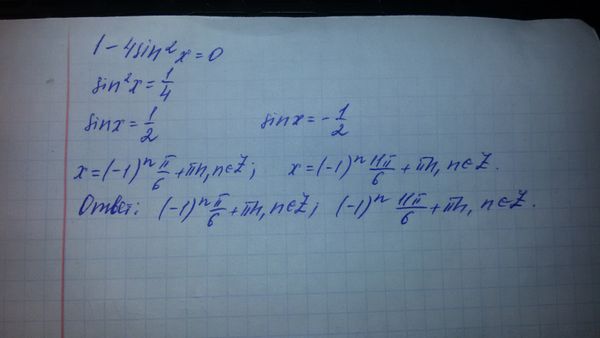 1 - 4sin²x = 0
sin²x = 1/4
sinx = 1/2 sinx = - 1/2
x = (-1)ⁿ π/6 + πn, n∈Z; x = (-1)ⁿ 11π/6 + πn, n∈Z.
Ответ: (-1)ⁿ π/6 + πn, n∈Z; (-1)ⁿ 11π/6 + πn, n∈Z.